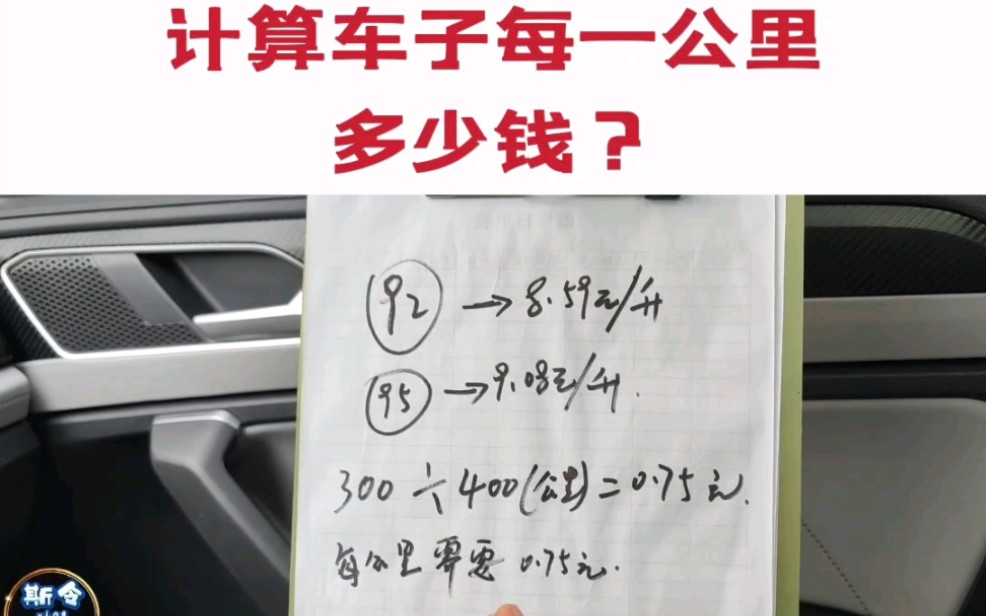 计算车子每一公里
多少钱？
92 → 8.59元/升
95 → 9.08元/升.
300 ÷ 400(公里) = 0.75元.
每公里需要 0.75元.
斯令